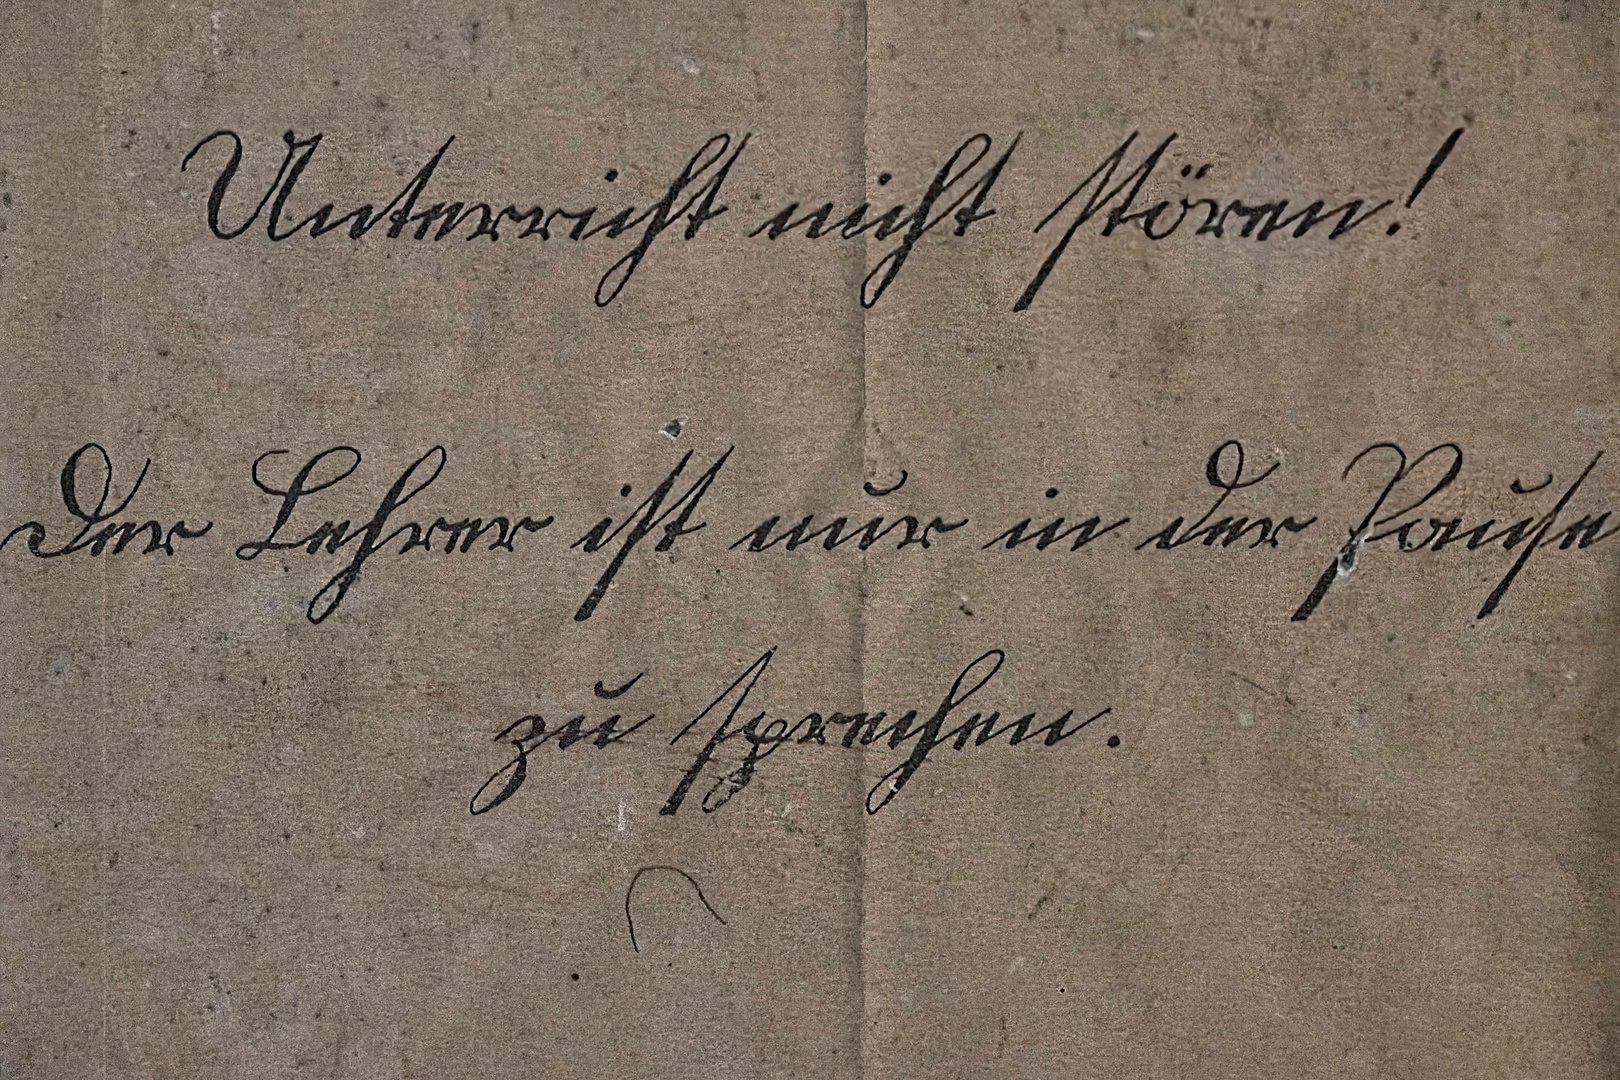 Unterricht nicht stören!
Der Lehrer ist nur in der Pause
zu sprechen.